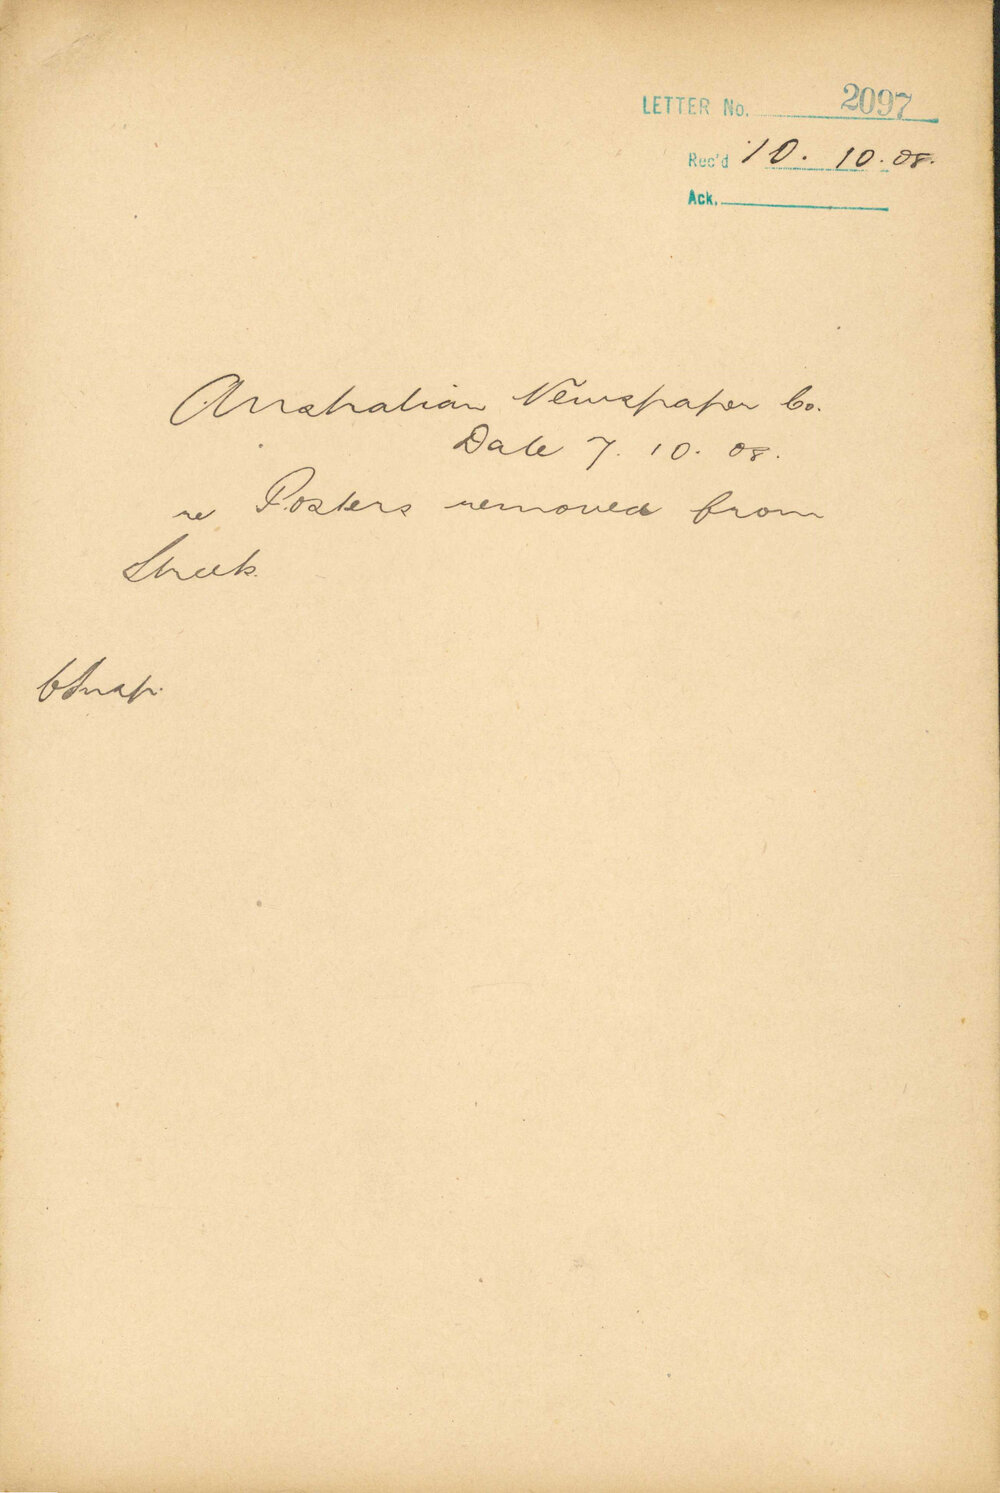 LETTER No. 2097
Rec'd 10. 10. 08.
Ack.
Australian Newspaper Co.
Date 7. 10. 08.
re Posters removed from
Streets.
C Insp.